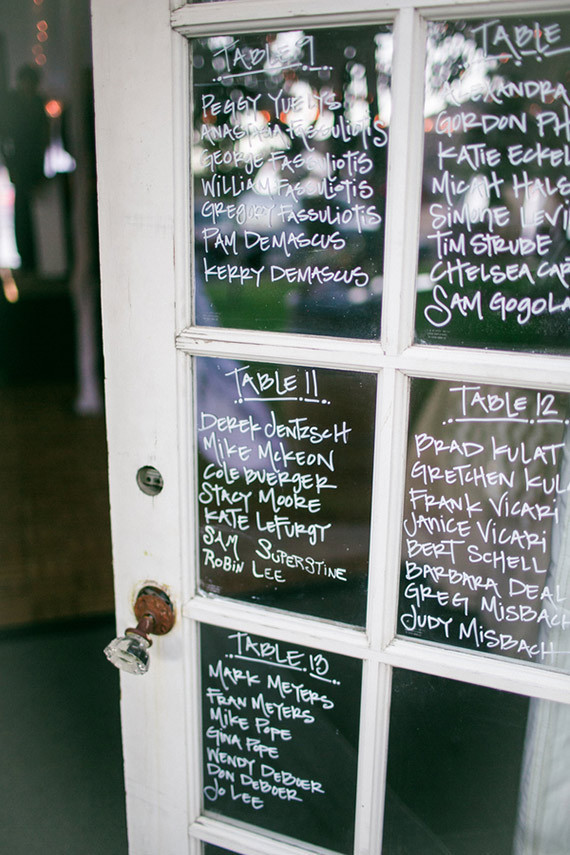 TABLE 9
PEGGY YUELYS
ANASTASIA FASSULIOTIS
GEORGE FASSULIOTIS
WILLIAM FASULIOTIS
GREGORY FASSULIOTIS
PAM DEMASCUS
KERRY DEMASCUS
TABLE
ALEXANDRA
GORDON PH
KATIE ECKEL
MICAH HALS
SIMONE LEVI
TIM STRUBE
CHELSEA CAR
SAM GOGOLA
TABLE 11
DEREK JENTZSCH
MIKE MCKEON
COLE BUERGER
STACY MOORE
KATE LEFURGY
SAM SUPERSTINE
ROBIN LEE
TABLE 12
BRAD KULAT
GRETCHEN KULA
FRANK VICARI
JANICE VICARI
BERT SCHELL
BARBARA DEAL
GREG MISBACH
JUDY MISBACH
TABLE 13
MARK MEYERS
FRAN MEYERS
MIKE POPE
GINA POPE
WENDY DEBOER
DON DEBOER
JO LEE